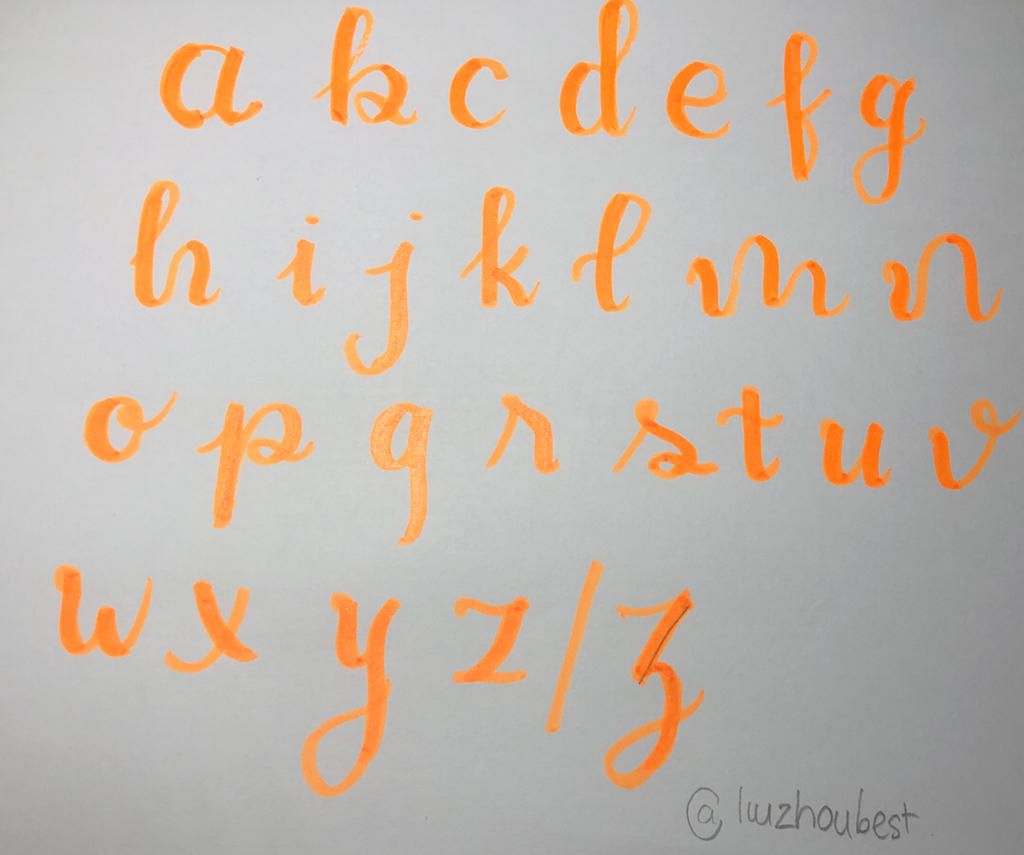 a b c d e f g
h i j k l m n
o p q r s t u v
w x y z / z
@lwzhoubest